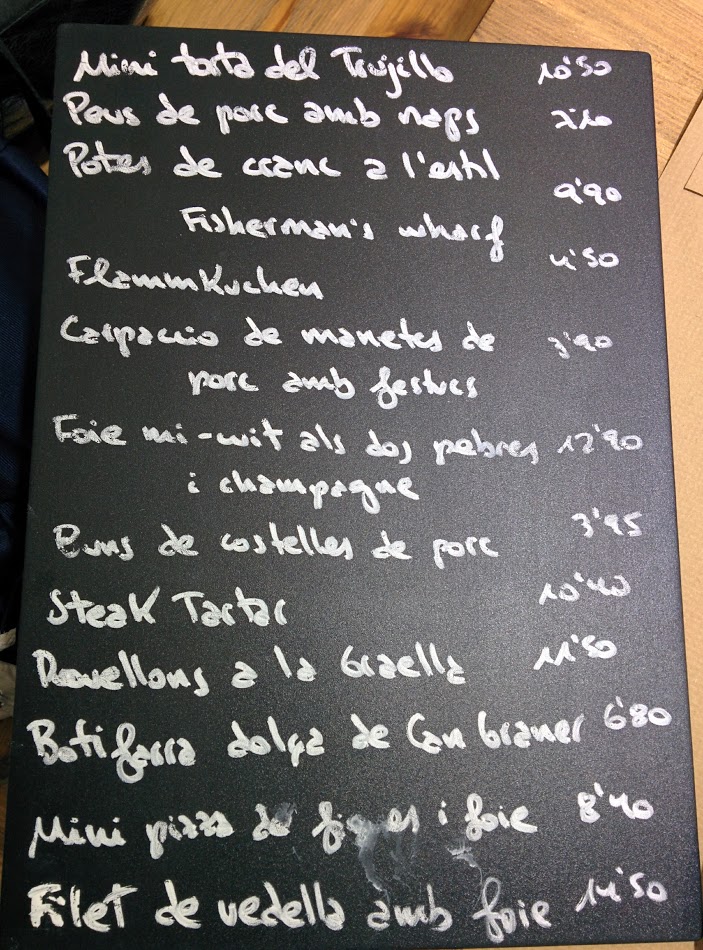 Mini torta del Trujillo 10'50
Peus de porc amb naps 7'10
Potes de cranc a l'estil
Fisherman's wharf 9'90
Flammkuchen 4'50
Carpaccio de manetes de 3'90
porc amb festucs
Foie mi-wit als dos pebres 12'90
i champagne
de costelles de porc 3'95
Steak Tartar 10'40
Rovellons a la Graella 11'50
Botifarra dolça de Can Graner 6'80
Mini pizza de figues i foie 8'40
Filet de vedella amb foie 14'50